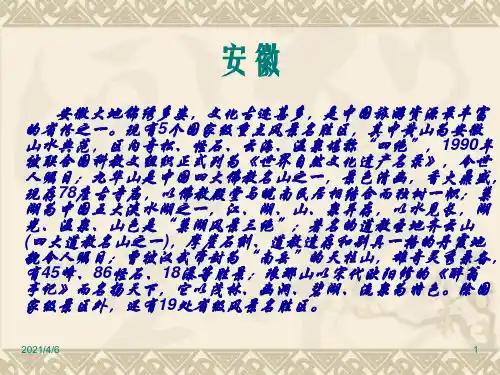 安徽
安徽大地锦绣多姿，文化古迹甚多，是中国旅游资源最丰富
的省份之一。现有5个国家级重点风景名胜区，其中黄山为安徽
山水典范，区内奇松、怪石、云海、温泉堪称“四绝”，1990年
被联合国科教文组织正式列为《世界自然文化遗产名录》，令世
人瞩目；九华山是中国四大佛教名山之一，景色清幽，香火鼎盛，
现存78座古寺庙，以佛教殿堂与皖南民居相结合而独树一帜；巢
湖为中国五大淡水湖之一，江、湖、山、泉并存，以水见长，湖
光、温泉、山色是“巢湖风景三绝”；著名的道教圣地齐云山
(四大道教名山之一)，摩崖石刻、道教遗存和别具一格的丹霞地
貌令人瞩目；曾被汉武帝封为“南岳”的天柱山，雄奇灵秀兼备，
有45峰、86怪石、18瀑等胜景；琅琊山以宋代欧阳修的《醉翁
亭记》而名扬天下，它以茂林、幽洞、碧湖、流泉为特色。除国
家级景区外，还有19处省级风景名胜区。
2021/4/6
1